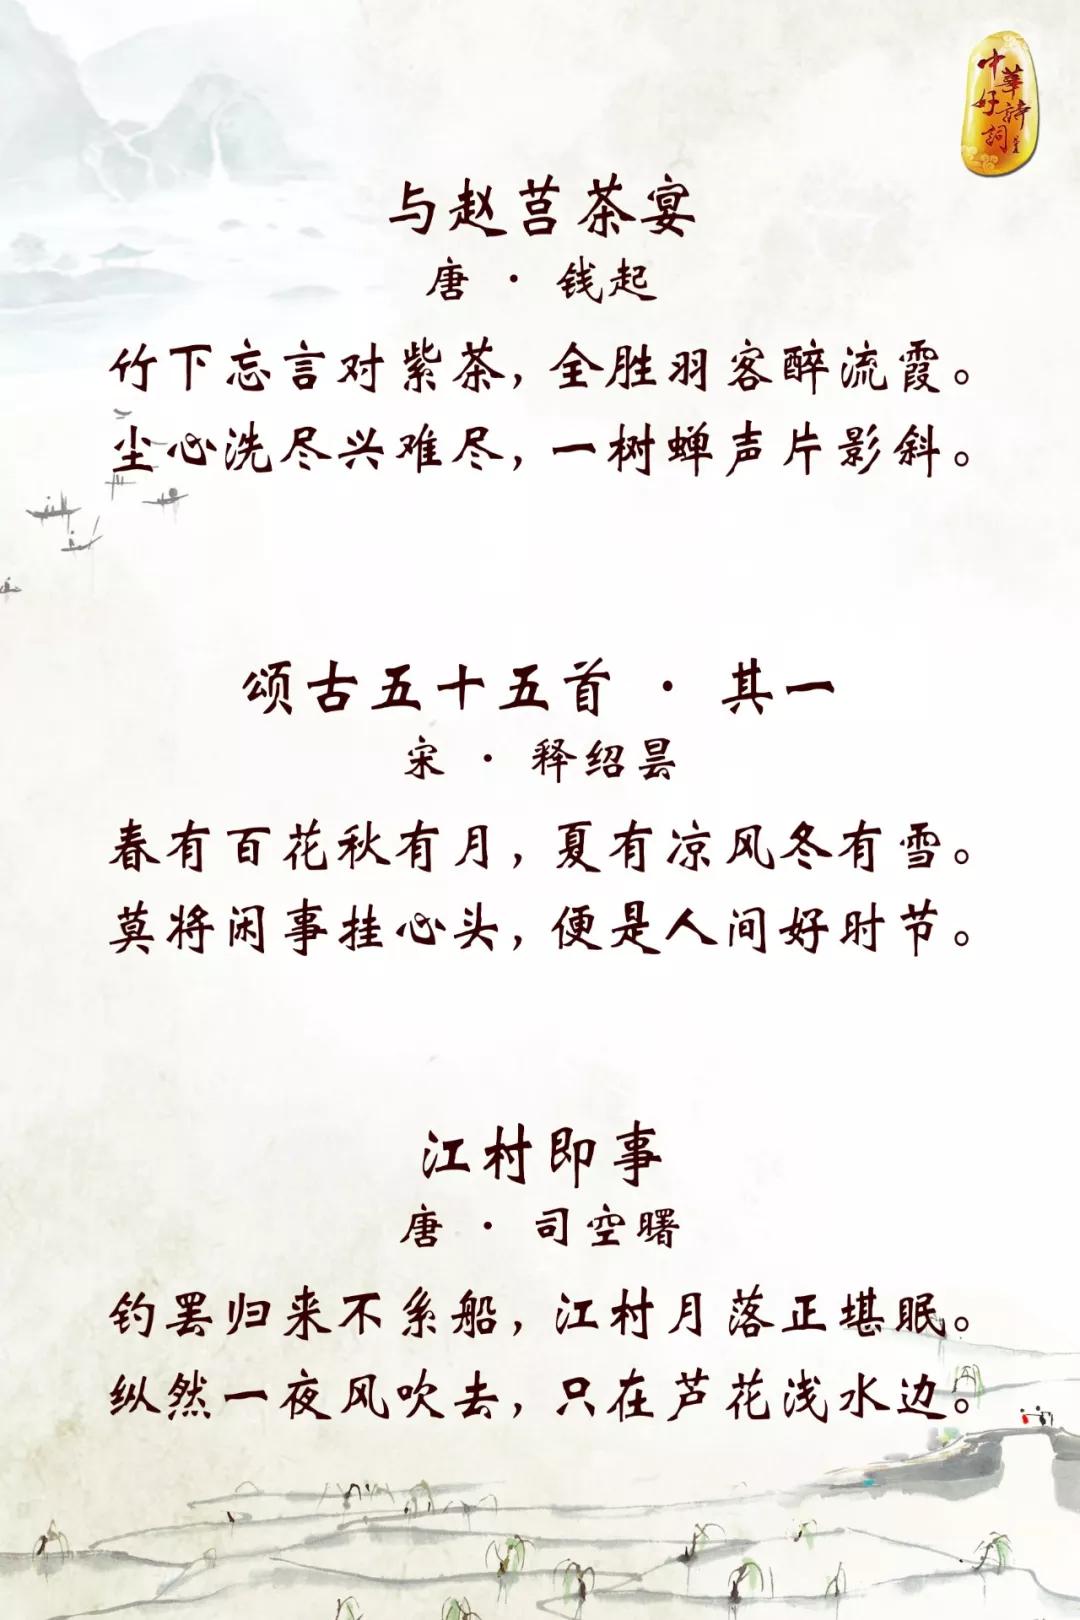 中華好詩詞
与赵莒茶宴
唐 · 钱起
竹下忘言对紫茶，全胜羽客醉流霞。
尘心洗尽兴难尽，一树蝉声片影斜。
颂古五十五首 · 其一
宋 · 释绍昙
春有百花秋有月，夏有凉风冬有雪。
莫将闲事挂心头，便是人间好时节。
江村即事
唐 · 司空曙
钓罢归来不系船，江村月落正堪眠。
纵然一夜风吹去，只在芦花浅水边。